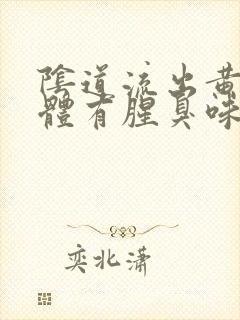 陰道流出黃
體有腥臭味
奕北瀟